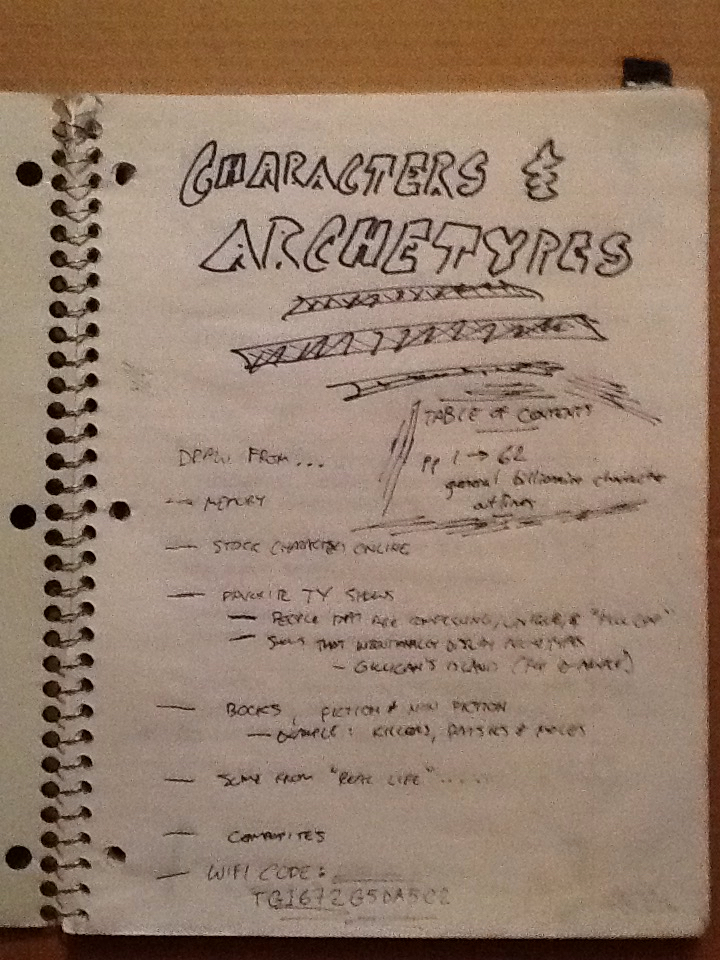 CHARACTERS &
ARCHETYPES
TABLE OF CONTENTS
pp 1 → 62
general billionaire character
outlines
DRAW FROM...
→ MEMORY
— STOCK CHARACTERS ONLINE
— FAVORITE TV SHOWS
— PEOPLE THAT ARE COMPELLING, UNIQUE, &
— SHOWS THAT INTENTIONALLY DISPLAY ARCHETYPES
— GILLIGAN'S ISLAND (FOR EXAMPLE)
— BOOKS, FICTION & NON FICTION
— EXAMPLE: KILLERS, & MOLES
— SOME FROM "REAL LIFE".....
— COMPOSITES
— WIFI CODE:
TGI672G5DA5C2